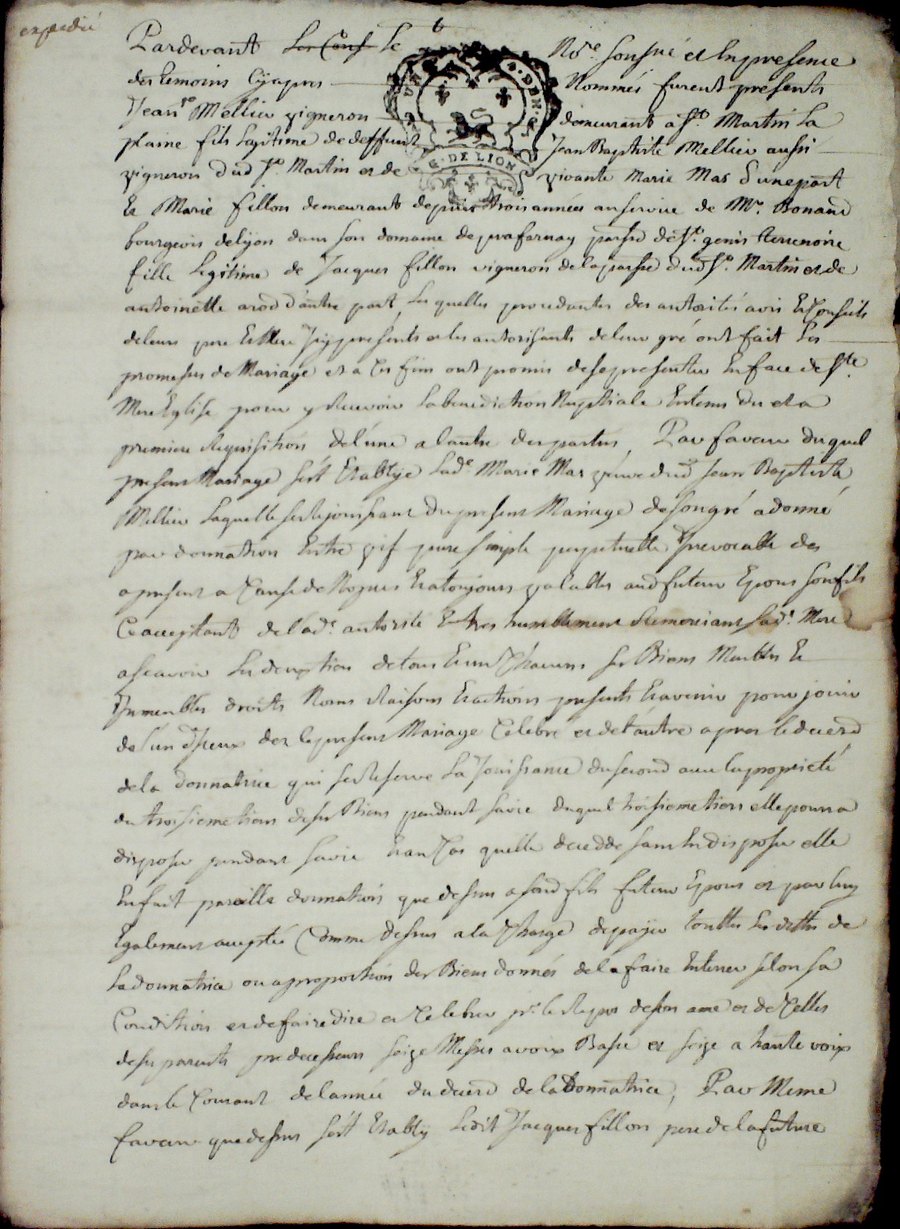 expedié
Pardevant Les Cons le Nore. soussné et En presence
des temoins Cyapres Nommés furent presents
Jean Mellier vigneron demeurant a St. Martin La
plaine fils legitime de deffunt Jean Baptiste Mellier aussi
vigneron dud St. Martin et de vivante Marie Mas d'une part
Et Marie fillon demeurant depuis trois années au service de Mr. Bonand
bourgeois de lyon dans son domaine de parsse de St. genis terrenoire
fille Legitime de Jacques fillon vigneron de la parsse dud St. Martin et de
antoinette d'autre part, Lesquelles procedantes des autorités avis Et Conseils
de leurs pere Et Mere Jcy presents et les autorisants de leur gré ont fait Les
promesses de Mariage et a Ces fins ont promis de se presenter En face de Ste.
Mere Eglise pour y Recevoir La benediction Nuptiale
premiere Requisition de l'une a l'autre des parties, Par faveur duquel
present Mariage s'est Etablye lade. Marie Mas veuve dud Jean Baptiste
Mellier Laquelle se Rejouissant du present Mariage de son gré a donné
par donnation Entre vif pure simple perpetuelle Jrrevocable des
apresent a Cause de Noces Et a toujours valables aud futeur Epoux son fils
Ce acceptant de l'ade. autorité Et tres humblement Remerciant sade. Mere
ascavoir Les deux tiers de tous Et un Chacuns ses Biens Meubles Et
Jmmeubles droits Noms Raisons Et actions presents Et avenir pour jouir
de l'un d'Jceux des le present Mariage Celebré et de l'autre apres le deced
de la donnatrice qui se Reserve La Jouissance du second avec la proprieté
du troisieme tiers de ses Biens pendant sa vie duquel troisieme tiers elle pourra
disposer pendant sa vie Et au Cas quelle decedde sans En disposer elle
En fait pareille donnation que dessus a sond fils futeur Epoux et par luy
Egalement acceptée Comme dessus a la Charge de payer touttes Les dettes de
La donnatrice ou a proportion des Biens donnés de la faire Enterrer selon sa
Condition et de faire dire et Celebrer pr. le Repos de son ame et de Celles
de ses parents predecesseurs seize Messes a voix Basse et seize a haute voix
dans le Courant de l'année du deced de la Donnatrice, Par Meme
faveur que dessus s'est Etably Ledit Jacques fillon pere de la future
G. DE LION